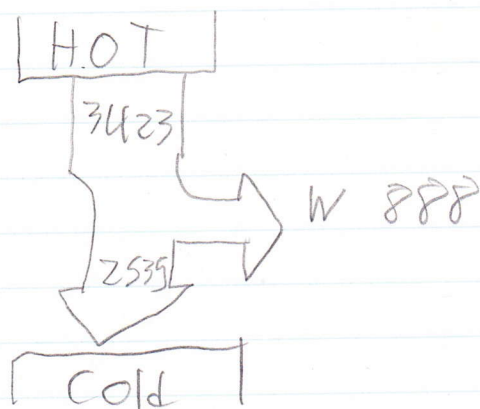 HOT
3423
W 888
2535
Cold